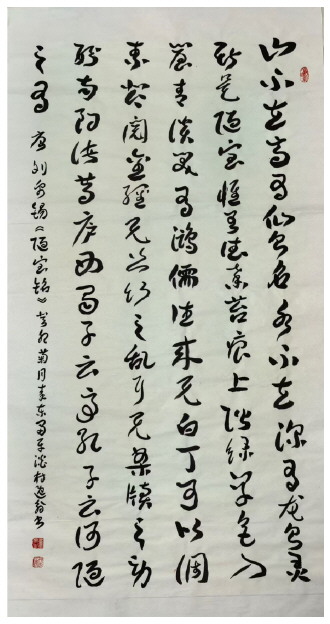 山不在高有仙则名水不在深有龙则灵
斯是陋室惟吾德馨苔痕上阶绿草色入
帘青谈笑有鸿儒往来无白丁可以调
素琴阅金经无丝竹之乱耳无案牍之劳
形南阳诸葛庐西蜀子云亭孔子云何陋
之有 唐刘禹锡《陋室铭》癸卯菊月